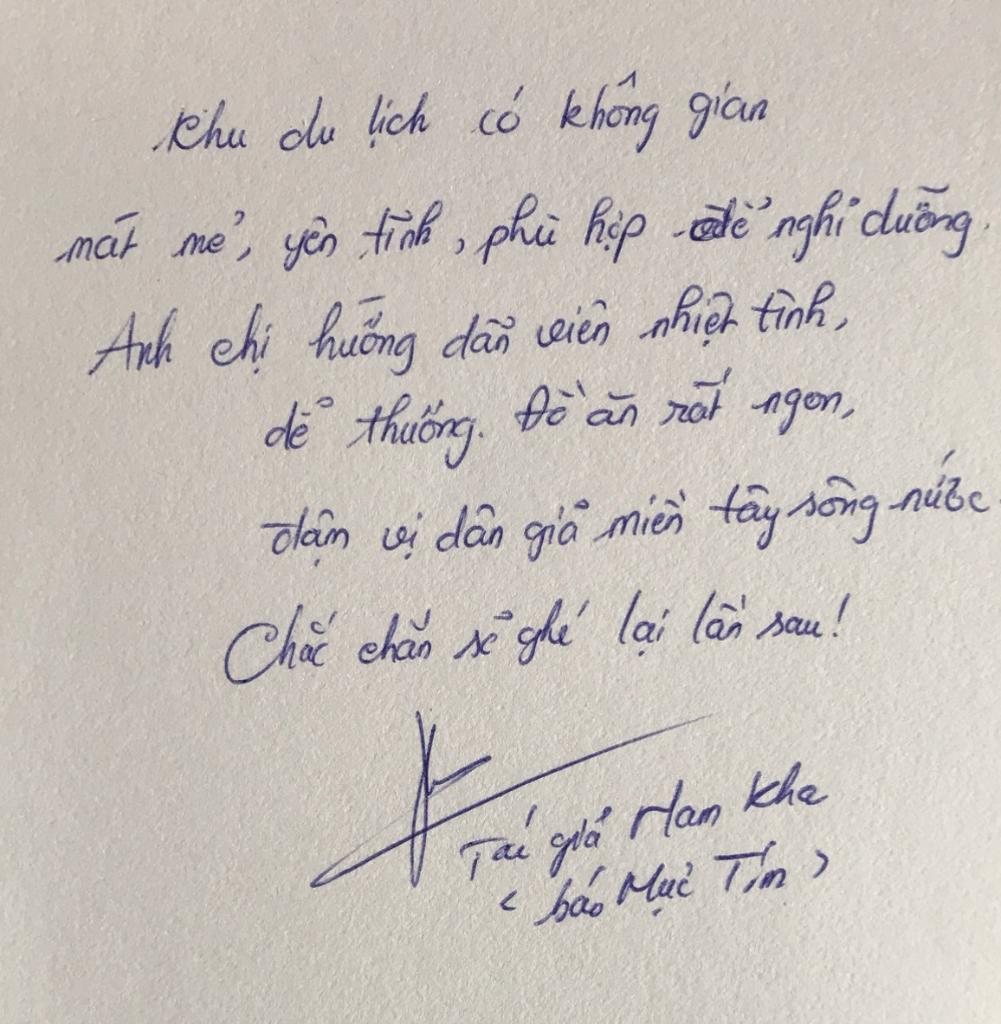 Khu du lịch có không gian
mát mẻ, yên tĩnh, phù hợp để nghỉ dưỡng.
Anh chị hướng dẫn viên nhiệt tình,
dễ thương. Đồ ăn rất ngon,
đậm vị dân giã miền tây sông nước
Chắc chắn sẽ ghé lại lần sau!
Tác giả Nam Kha
(báo Mực Tím)